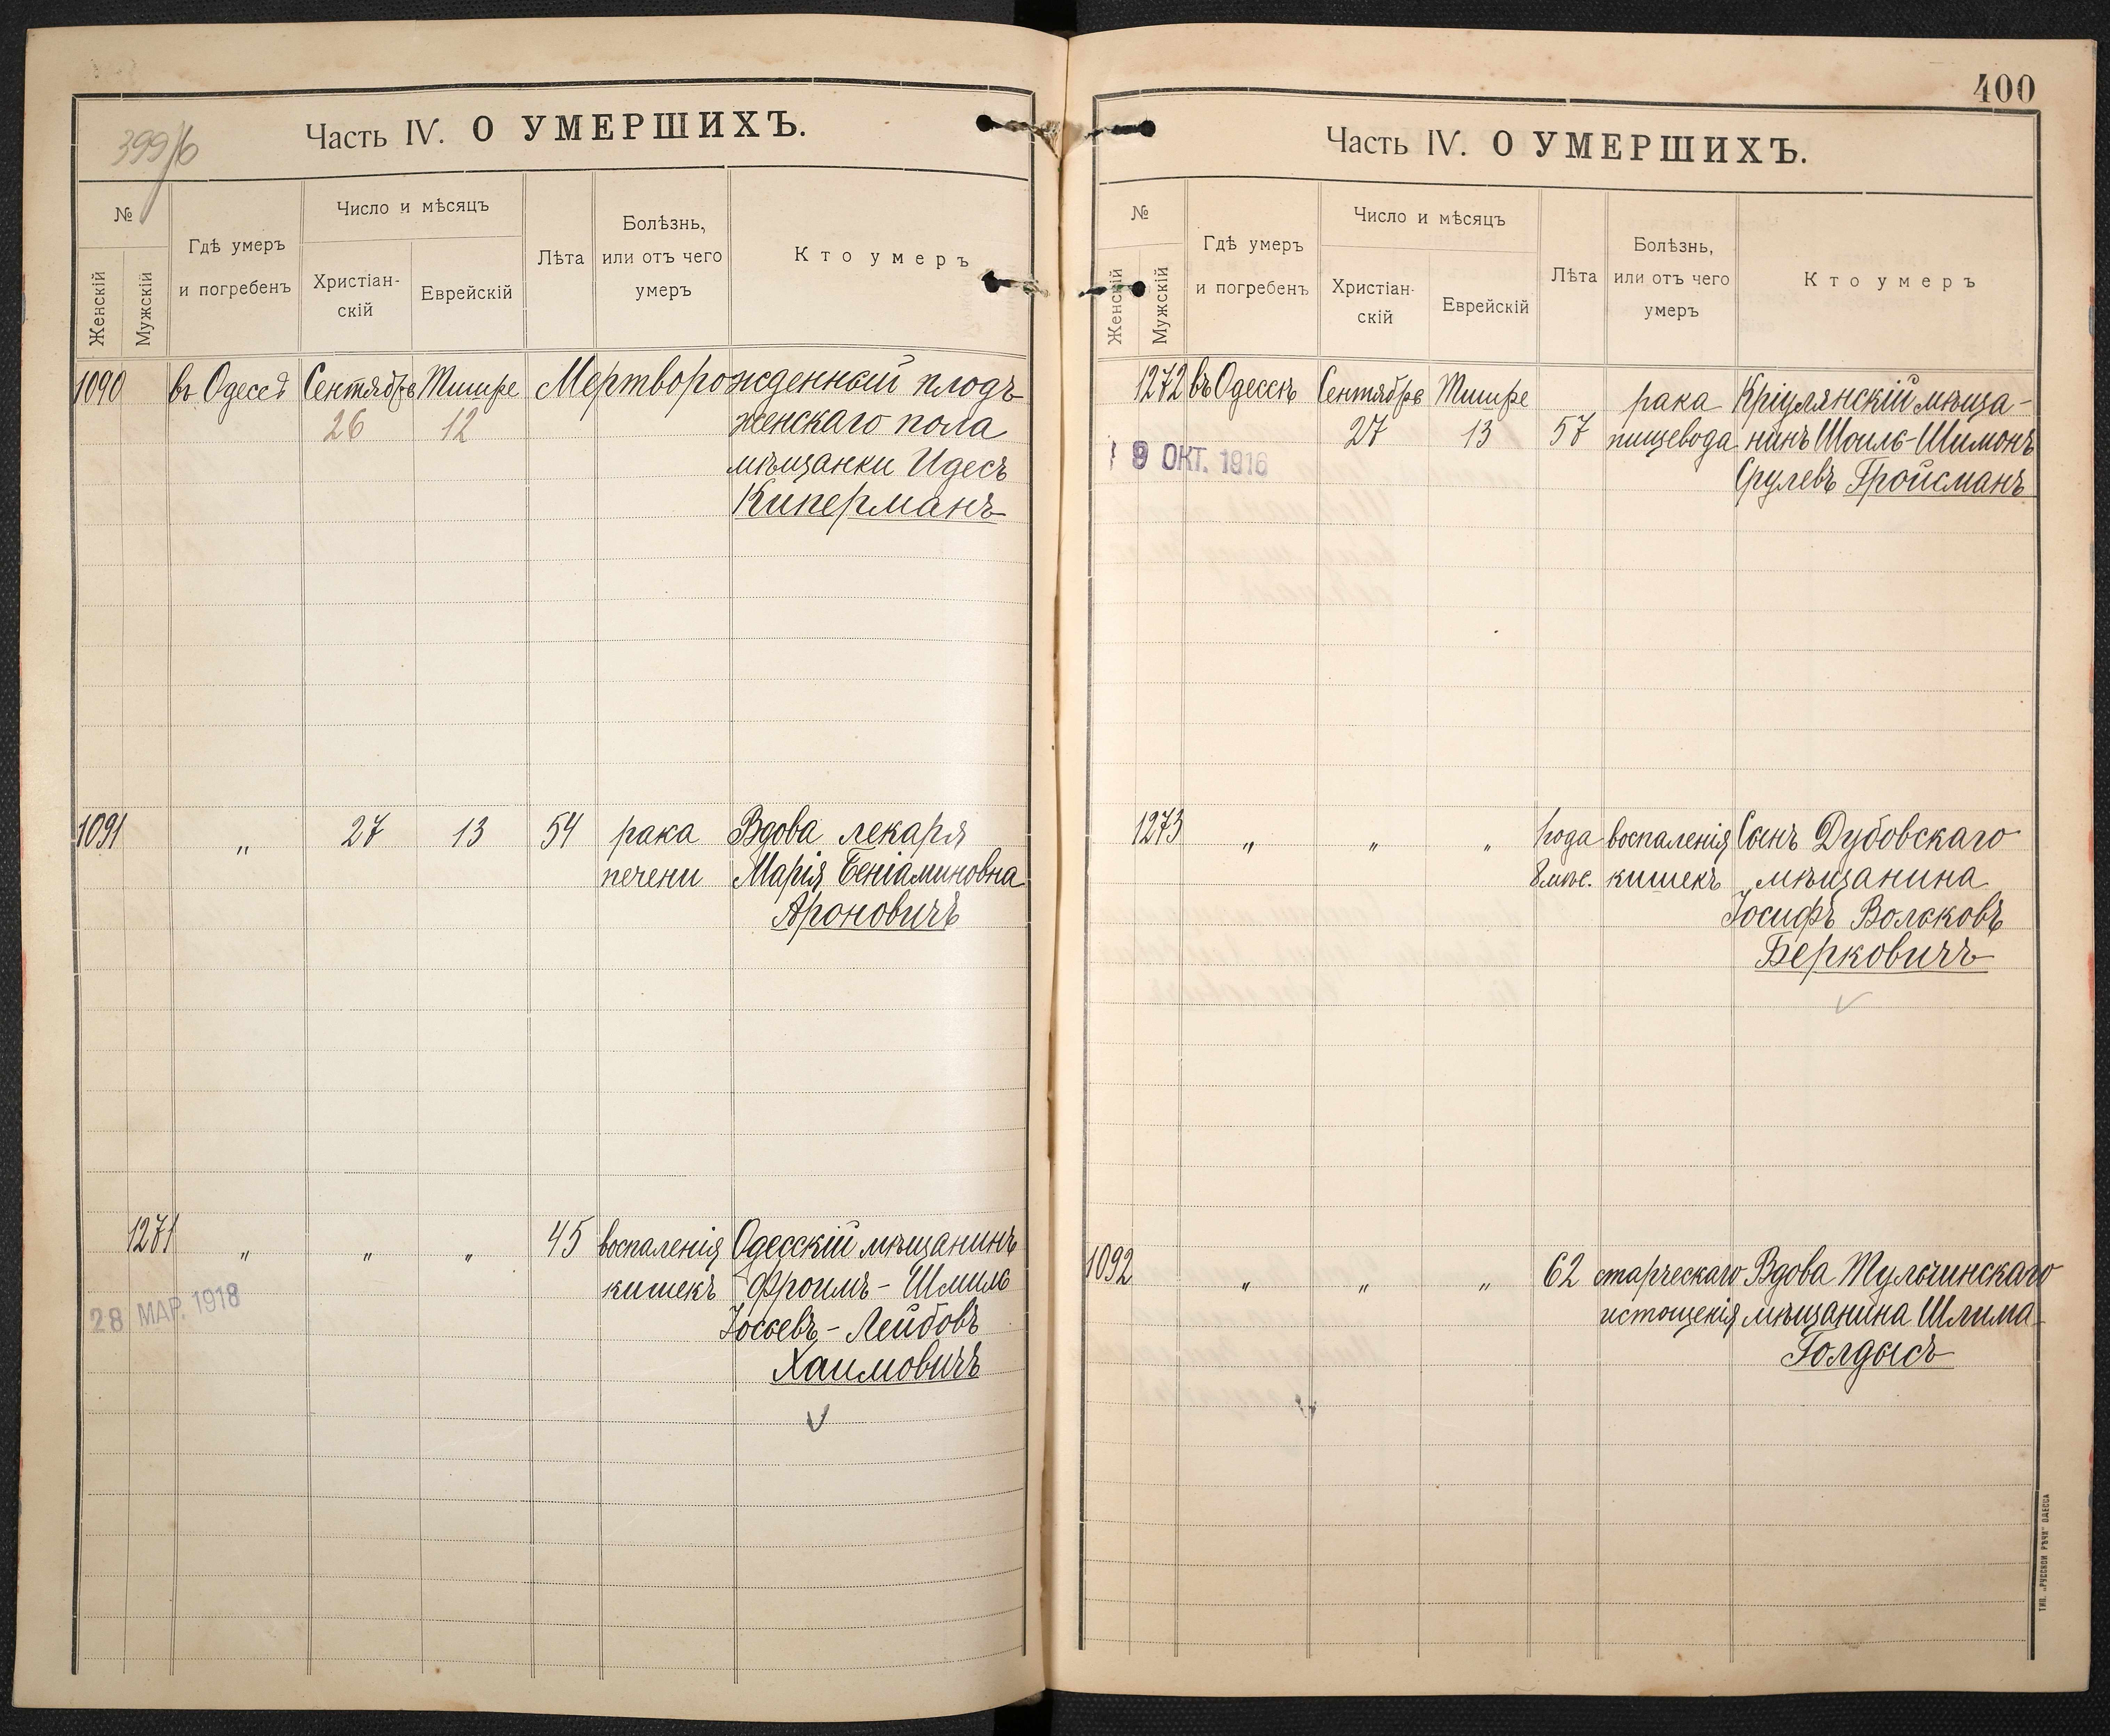 399/б
Часть IV. О УМЕРШИХЪ.
№
Женскій
Мужскій
Гдѣ умеръ
и погребенъ
Число и мѣсяцъ
Христіан-
скій
Еврейскій
Лѣта
Болѣзнь,
или отъ чего
умеръ
Кто умеръ
1090 въ Одессѣ Сентябрь Тишре Мертворожденный плодъ
26 12 женскаго пола
мѣщанки Идесъ
Киперманъ
1091 „ 27 13 54 рака Вдова лекаря
печени Марія Беніаминовна
Ароновичъ
1271 „ „ „ 45 воспаленія Одесскій мѣщанинъ
кишекъ Фроимъ-Шмиль
28 МАР. 1918
Іосьевъ-Лейбовъ
Хаимовичъ
400
Часть IV. О УМЕРШИХЪ.
№
Женскій
Мужскій
Гдѣ умеръ
и погребенъ
Число и мѣсяцъ
Христіан-
скій
Еврейскій
Лѣта
Болѣзнь,
или отъ чего
умеръ
Кто умеръ
1272 въ Одессѣ Сентябрь Тишре рака Кріулянскій мѣща-
27 13 57 пищевода нинъ Шоиль-Шимонъ
9 ОКТ. 1916
Срулевъ Гройсманъ
1273 „ „ „ 1 года воспаленія Сынъ Дубовскаго
8 мѣс. кишекъ мѣщанина
Іосифъ Вольковъ
Берковичъ
1092 „ „ „ 62 старческаго Вдова Тульчинскаго
истощенія мѣщанина Шлима
Голдысъ
ТИП. „РУССКОЙ РѢЧИ" ОДЕССА